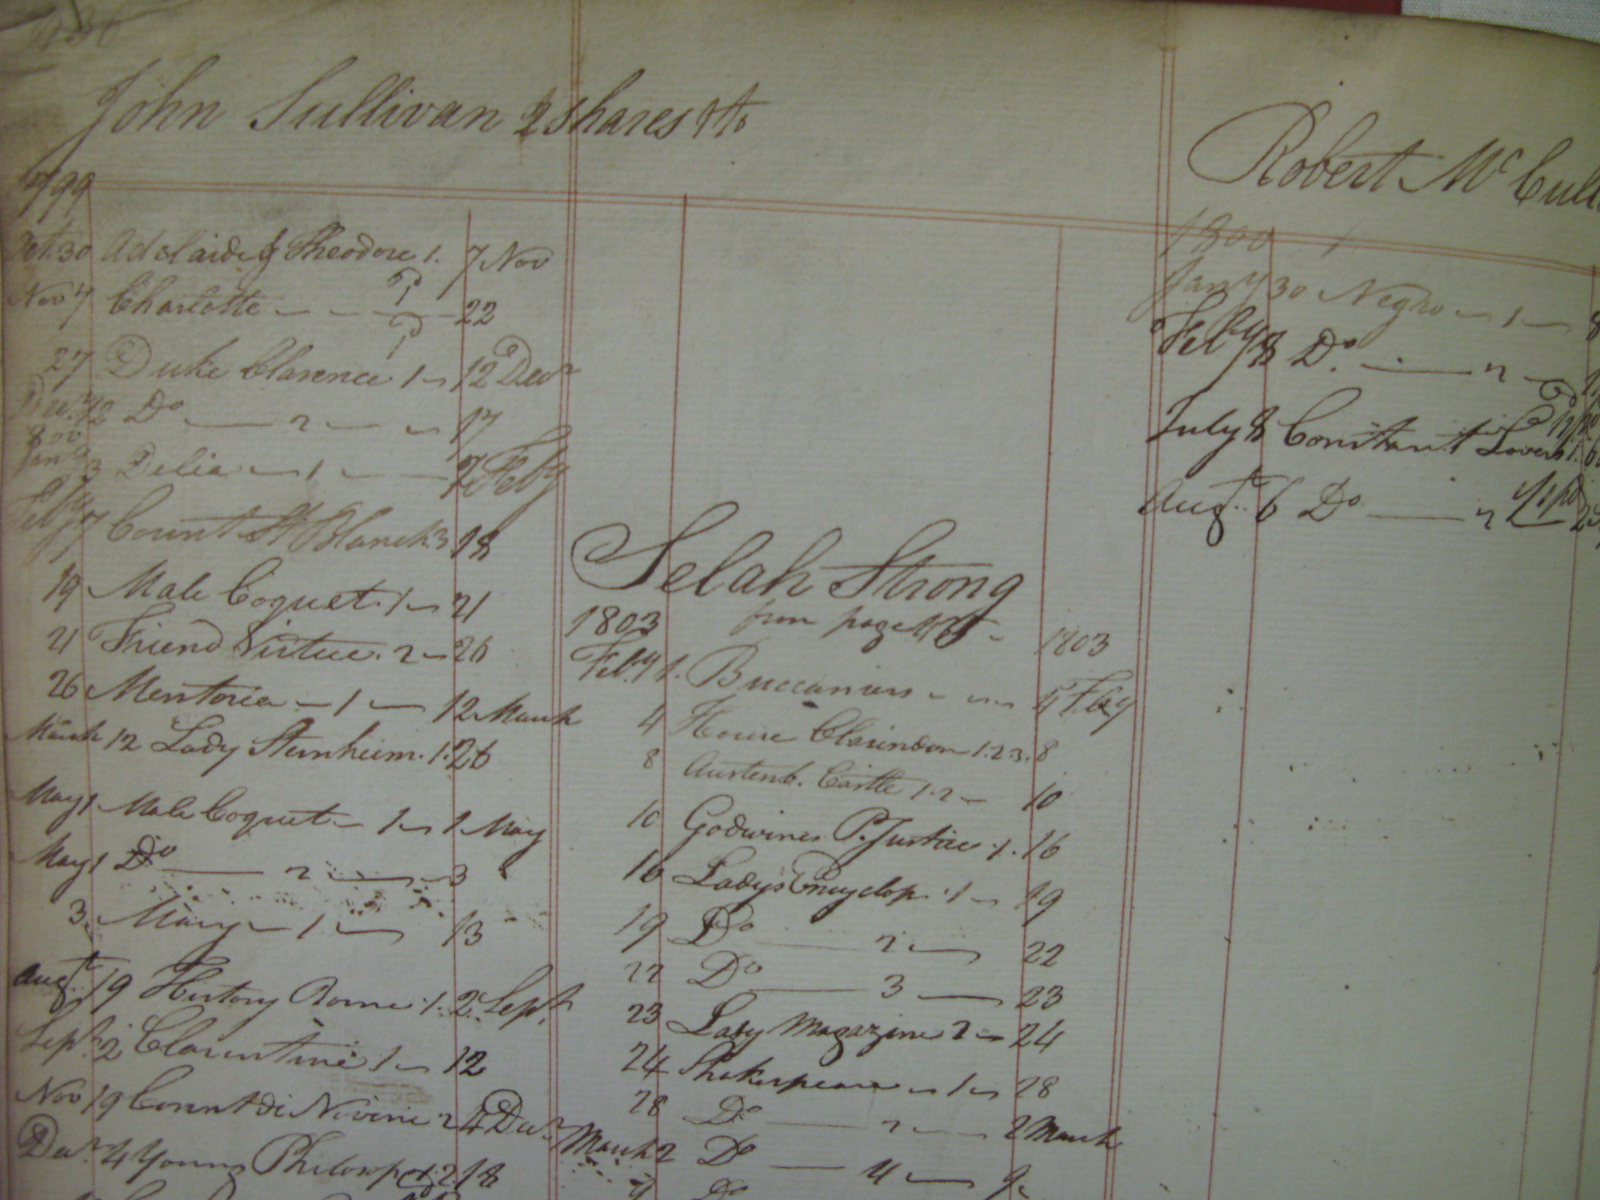 John Sullivan 2 shares
1799
Oct. 30 Adelaide & Theodore 1. 7 Nov
Nov 7 Charlotte 22
27 Duke Clarence 1 12 Decr
Decr 12 Do 2 17
1800
Jany 3 Delia 1 7 Feby
Feby 7 Count St Blanck 3 18
19 Male Coquet 1 21
21 Friend Virtue 2 26
26 Mentoria 1 12 March
March 12 Lady Sternheim 1. 26
May 1 Male Coquet 1 1 May
May 1 Do 2 3
3 Mary 1 13
Augt 19 History Rome 1. 2 Sept.
Sept. 2 Clarentine 1 12
Nov 19 Count di Novini 2 4 Decr
Decr 4 Young Philosop 1.2 18
Selah Strong
from page
1803 1803
Feby 1. Buccaniers 4 Feby
4 House Clarindon 1.2.3. 8
8 Austenb. Castle 1.2 10
10 Godwines P. Justice .1. 16
16 Ladys Encyclop. 1 19
19 Do 2 22
22 Do 3 23
23 Lady Magazine 2 24
24 Shakespeare 1 28
28 Do 2 2 March
March 2 Do 4
Do
Robert Mc Cull
1800
Jany 30 Negro 1 8
Feby 8 Do. 2
July 8 Constant Lover 1. 6
Augt. 6 Do 2